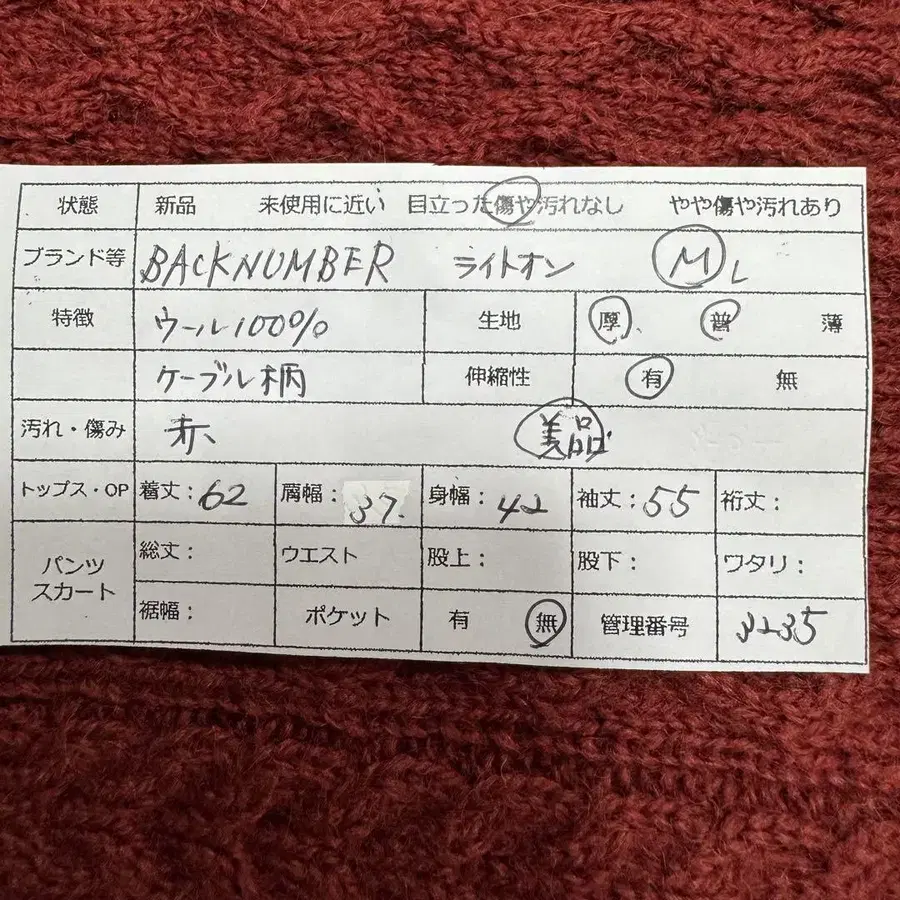 状態 新品 未使用に近い 目立った傷や汚れなし やや傷や汚れあり
ブランド等 BACKNUMBER ライトオン M L
特徴 ウール100% 生地 厚、 普 薄
ケーブル柄 伸縮性 有 無
汚れ・傷み 赤、 美品
トップス・OP 着丈:62 肩幅:37. 身幅:42 袖丈:55 裄丈:
パンツ スカート 総丈: ウエスト 股上: 股下: ワタリ:
裾幅: ポケット 有 無 管理番号 3235